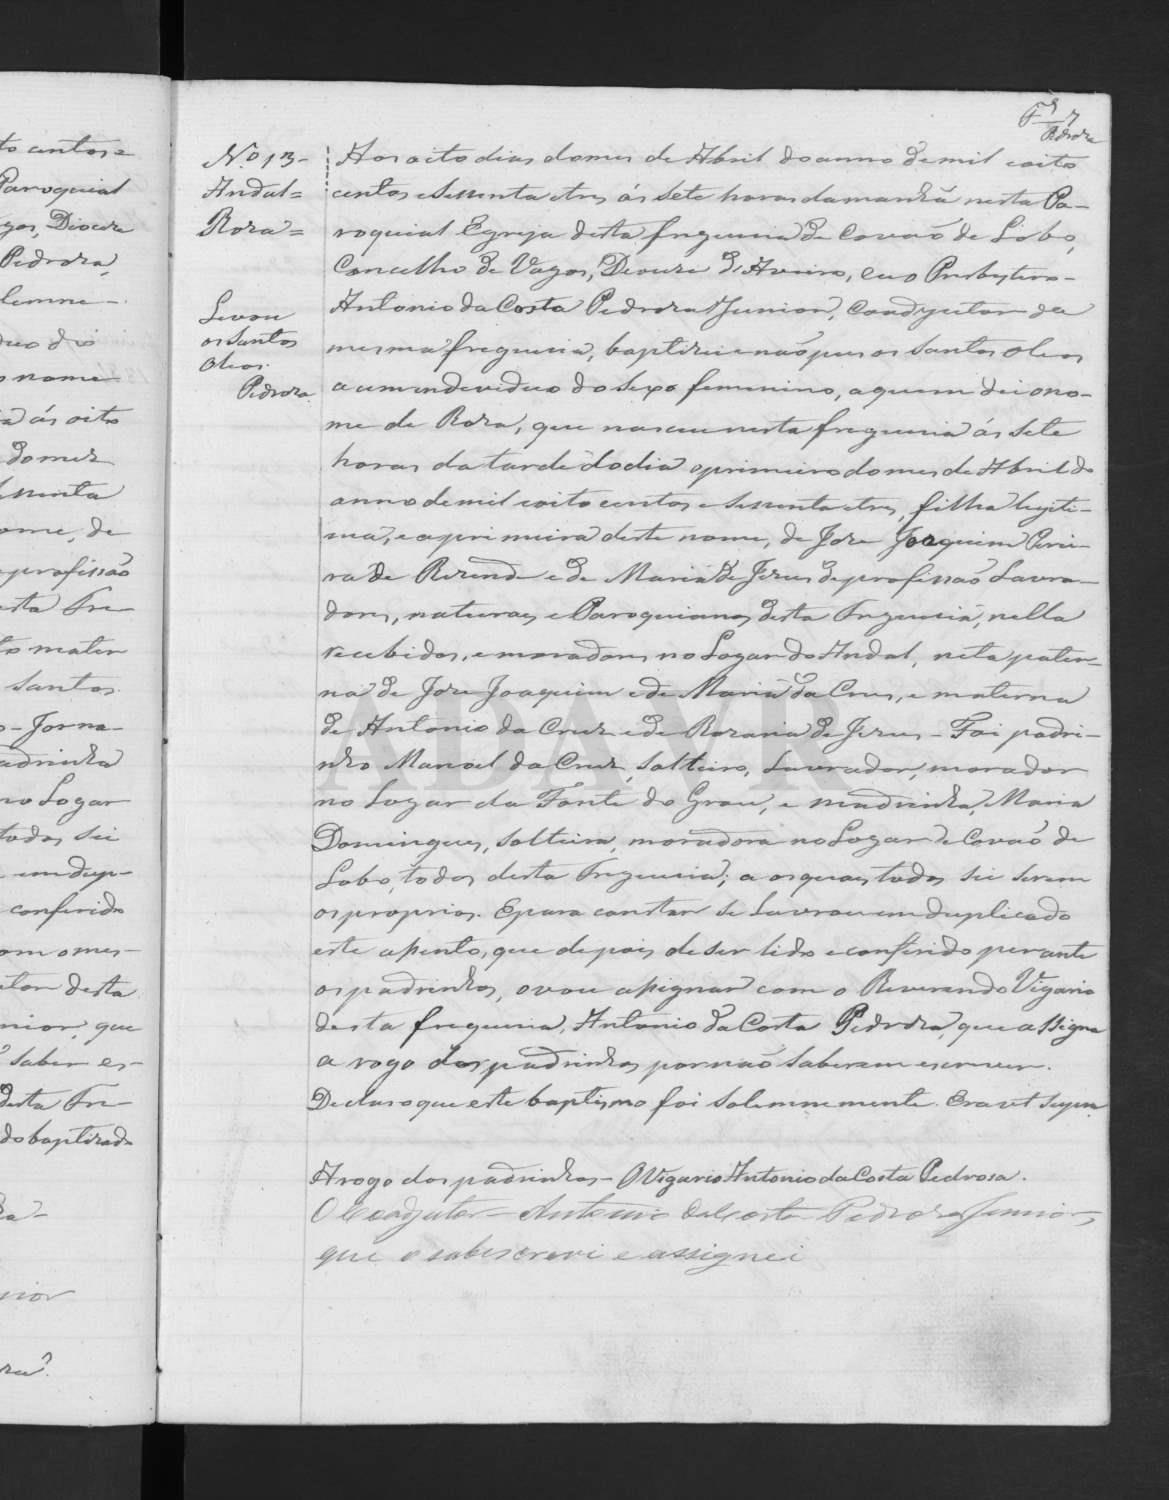 Fs 7
Pedroza
to centos e
Paroquial
gos, Diocese
Pedroza,
lemne-
duo do
o nome
ás oito
do mez
sessenta
ome, de
profissão
esta Fre-
to mater
santos
- Jorna-
adrinha
no Logar
todos sei
em dup-
conferido
om o mes-
utor desta
nior, que
saber es-
desta Fre-
do baptizado
nior
N.º 13-
Andal=
Roza=
Levou
os Santos
Oleos.
Pedroza.
Aos oito dias do mes de Abril do anno de mil oito
centos e sessenta e tres ás sete horas da manhã nesta Pa-
roquial Egreja desta freguesia de Covaõ de Lobo,
Concelho de Vagos, Deouse d'Aveiro, eu o Presbytero-
Antonio da Costa Pedroza Junior, Coadjutor da
mesma freguesia, baptizei e naõ pus os santos oleos
a um endeveduo do sexo femenino, a quem dei o no-
me de Roza, que nasceu nesta freguesia ás sete
horas da tarde do dia o primeiro do mes de Abril do
anno de mil e oito centos e sessenta e tres, filha legiti-
ma, e a primeira deste nome, de Jose Joaquim Perei-
ra de Rezende e de Maria de Jezus de profissaõ Lavra-
dores, naturaes e Paroquianos desta Freguesia, nella
recebidos, e moradores no Logar do Andal, neta pater-
na de Jose Joaquim e de Maria da Crus, e materna
de Antonio da Cruz e de Rozaria de Jezus - Foi padri-
nho Manoel da Cruz, solteiro, Lavrador, morador
no Logar da Fonte do Grou, e madrinha, Maria
Domingues, solteira, moradora no Logar de Covaõ de
Lobo, todos desta Freguesia; a os quaes todos sei serem
os proprios. E para constar se Lavrou em duplicado
este assento, que depois de ser lido e conferido perante
os padrinhos, o vou assignar com o Reverendo Vigario
desta freguesia, Antonio da Costa Pedroza, que assigna
a rogo dos padrinhos por naõ saberem escrever.
Declaro que este baptismo foi solemnemente. Era ut supra
A rogo dos padrinhos - O Vigario Antonio da Costa Pedrosa.
O Coadjutor = Antonio da Costa Pedroza Junior,
que o subscrevi e assignei
ADAVR